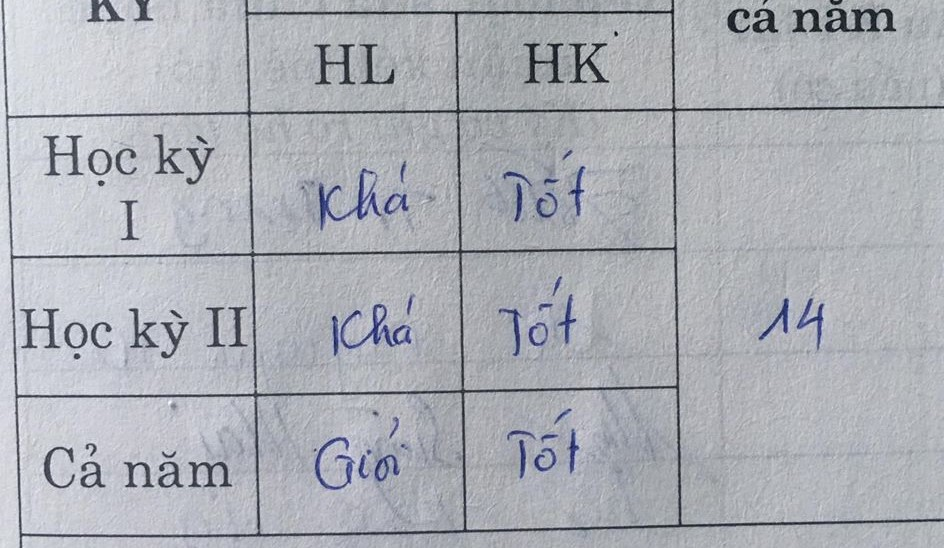 KỲ
cả năm
HL HK
Học kỳ I Khá Tốt
Học kỳ II Khá Tốt 14
Cả năm Giỏi Tốt